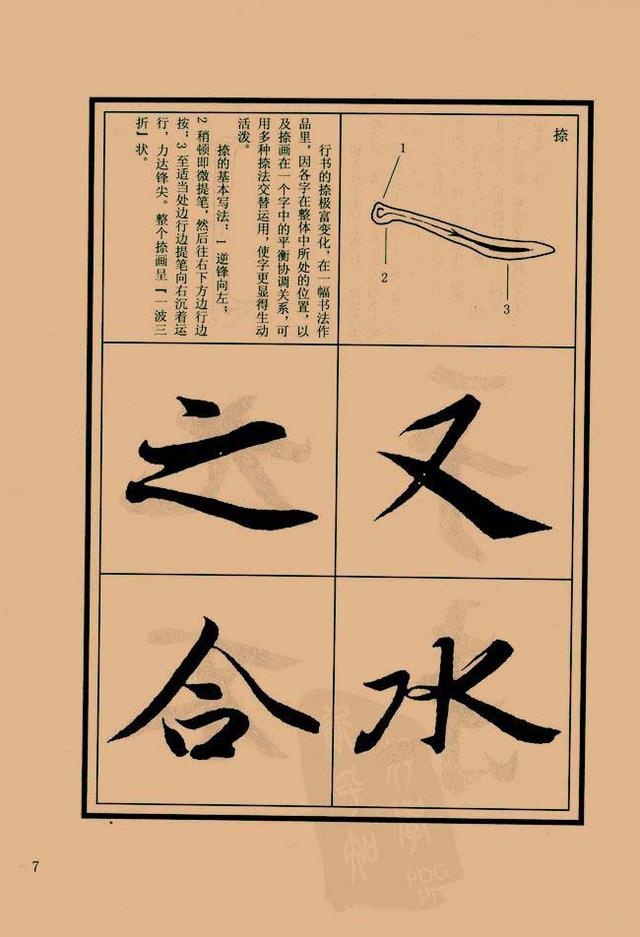 捺
1
2
3
行书的捺极富变化，在一幅书法作
品里，因各字在整体中所处的位置，以
及捺画在一个字中的平衡协调关系，可
用多种捺法交替运用，使字更显得生动
活泼。
捺的基本写法：1 逆锋向左；
2 稍顿即微提笔，然后往右下方边行边
按；3 至适当处边行边提笔向右沉着运
行，力达锋尖。整个捺画呈『一波三
折』状。
又
水
之
合
7
PDG